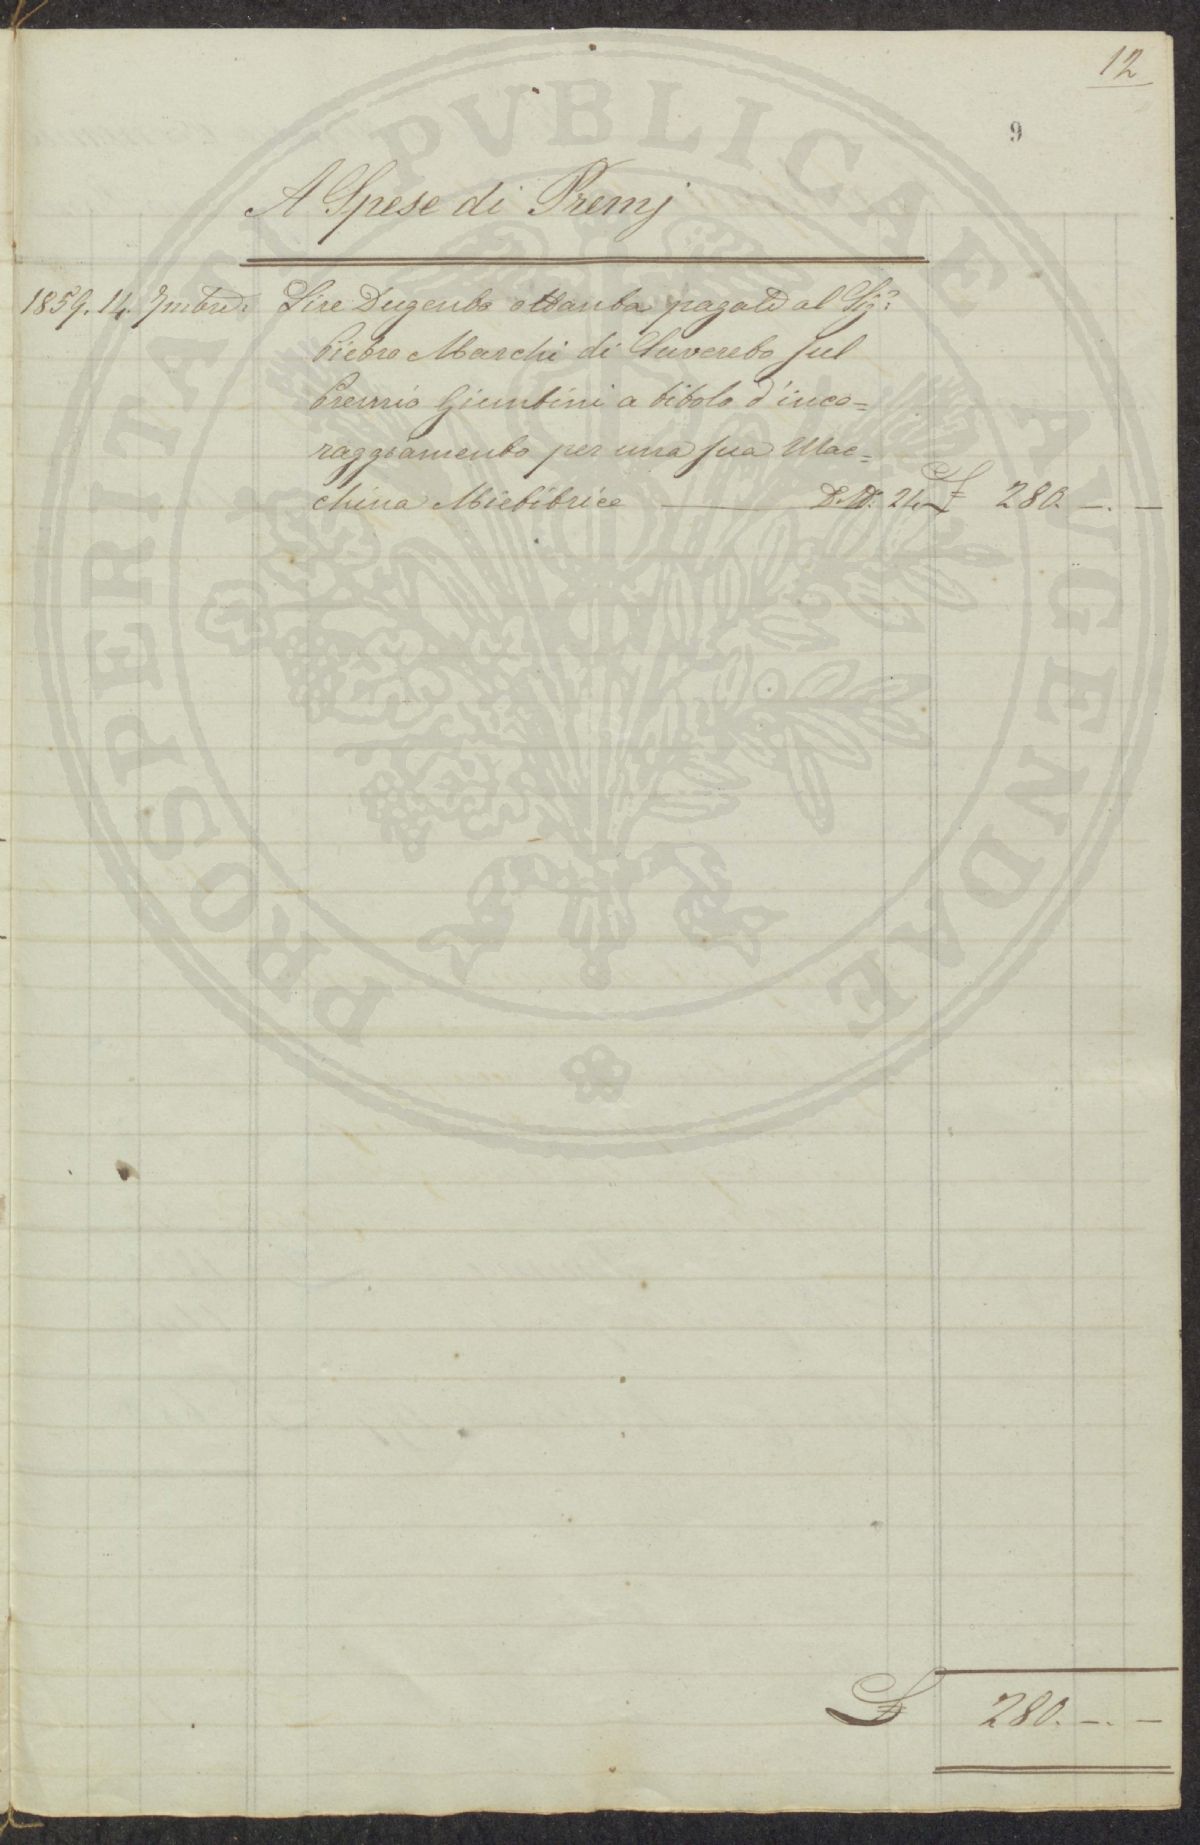 12
9
A Spese di Premj
1859. 14. 7mbre. Lire Dugento ottanta pagate al Sigr.
Pietro Marchi di Suvereto sul
Premio Giuntini a titolo d'inco=
raggiamento per una sua Mac=
china Mietitrice — 24 £ 280. —. —
£ 280. —. —
PROSPERITATI PVBLICAE AVGENDAE